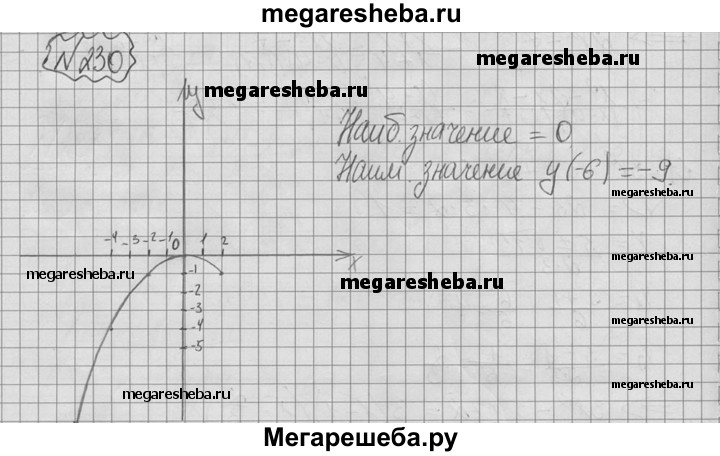 megaresheba.ru
N 230
megaresheba.ru
y megaresheba.ru
Наиб. значение = 0
Наим. значение y(-6) = -9.
megaresheba.ru
-4 -3 -2 -1 0 1 2
x
megaresheba.ru
megaresheba.ru
-1
megaresheba.ru
-2
-3
megaresheba.ru
-4
-5
megaresheba.ru
megaresheba.ru
megaresheba.ru
Мегарешеба.ру